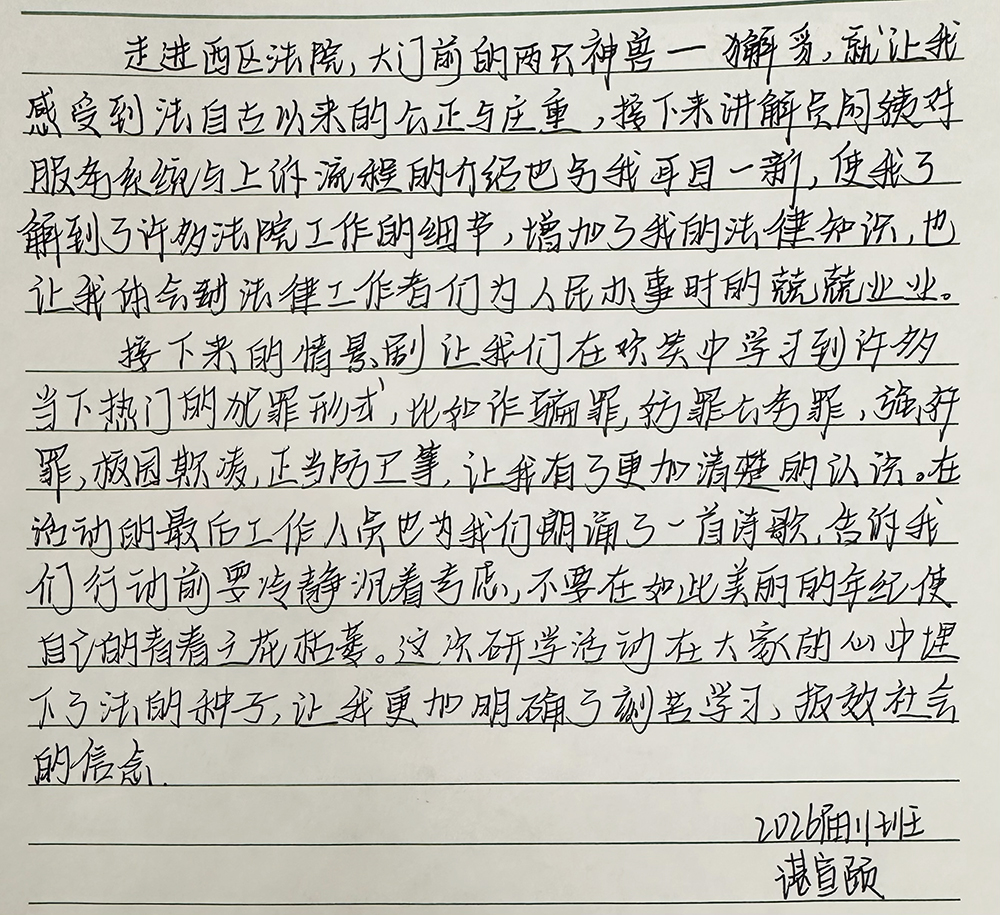 走进西区法院，大门前的两只神兽一獬豸，就让我
感受到法自古以来的公正与庄重，接下来讲解员阿姨对
服务系统与上诉流程的介绍也令我耳目一新，使我了
解到了许多法院工作的细节，增加了我的法律知识，也
让我体会到法律工作者们为人民办事时的兢兢业业。
接下来的情景剧让我们在欢笑中学习到许多
当下热门的犯罪形式，比如诈骗罪，妨罪公务罪，强奸
罪，校园欺凌，正当防卫等，让我有了更加清楚的认识。在
活动的最后工作人员也为我们朗诵了一首诗歌，告诉我
们行动前要冷静沉着考虑，不要在如此美丽的年纪使
自己的青春之花枯萎。这次研学活动在大家的心中埋
下了法的种子，让我更加明确了刻苦学习，报效社会
的信念.
2026届 班
谌宣颐